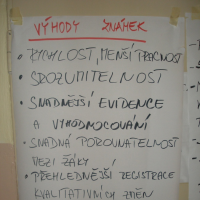 VÝHODY ZNÁMEK
• RYCHLOST, MENŠÍ PRACNOST
• SROZUMITELNOST
• SNADNĚJŠÍ EVIDENCE
A VYHODNOCOVÁNÍ
• SNADNÁ POROVNATELNOST
MEZI ŽÁKY
• PŘEHLEDNĚJŠÍ REGISTRACE
KVALITATIVNÍCH ZMĚN